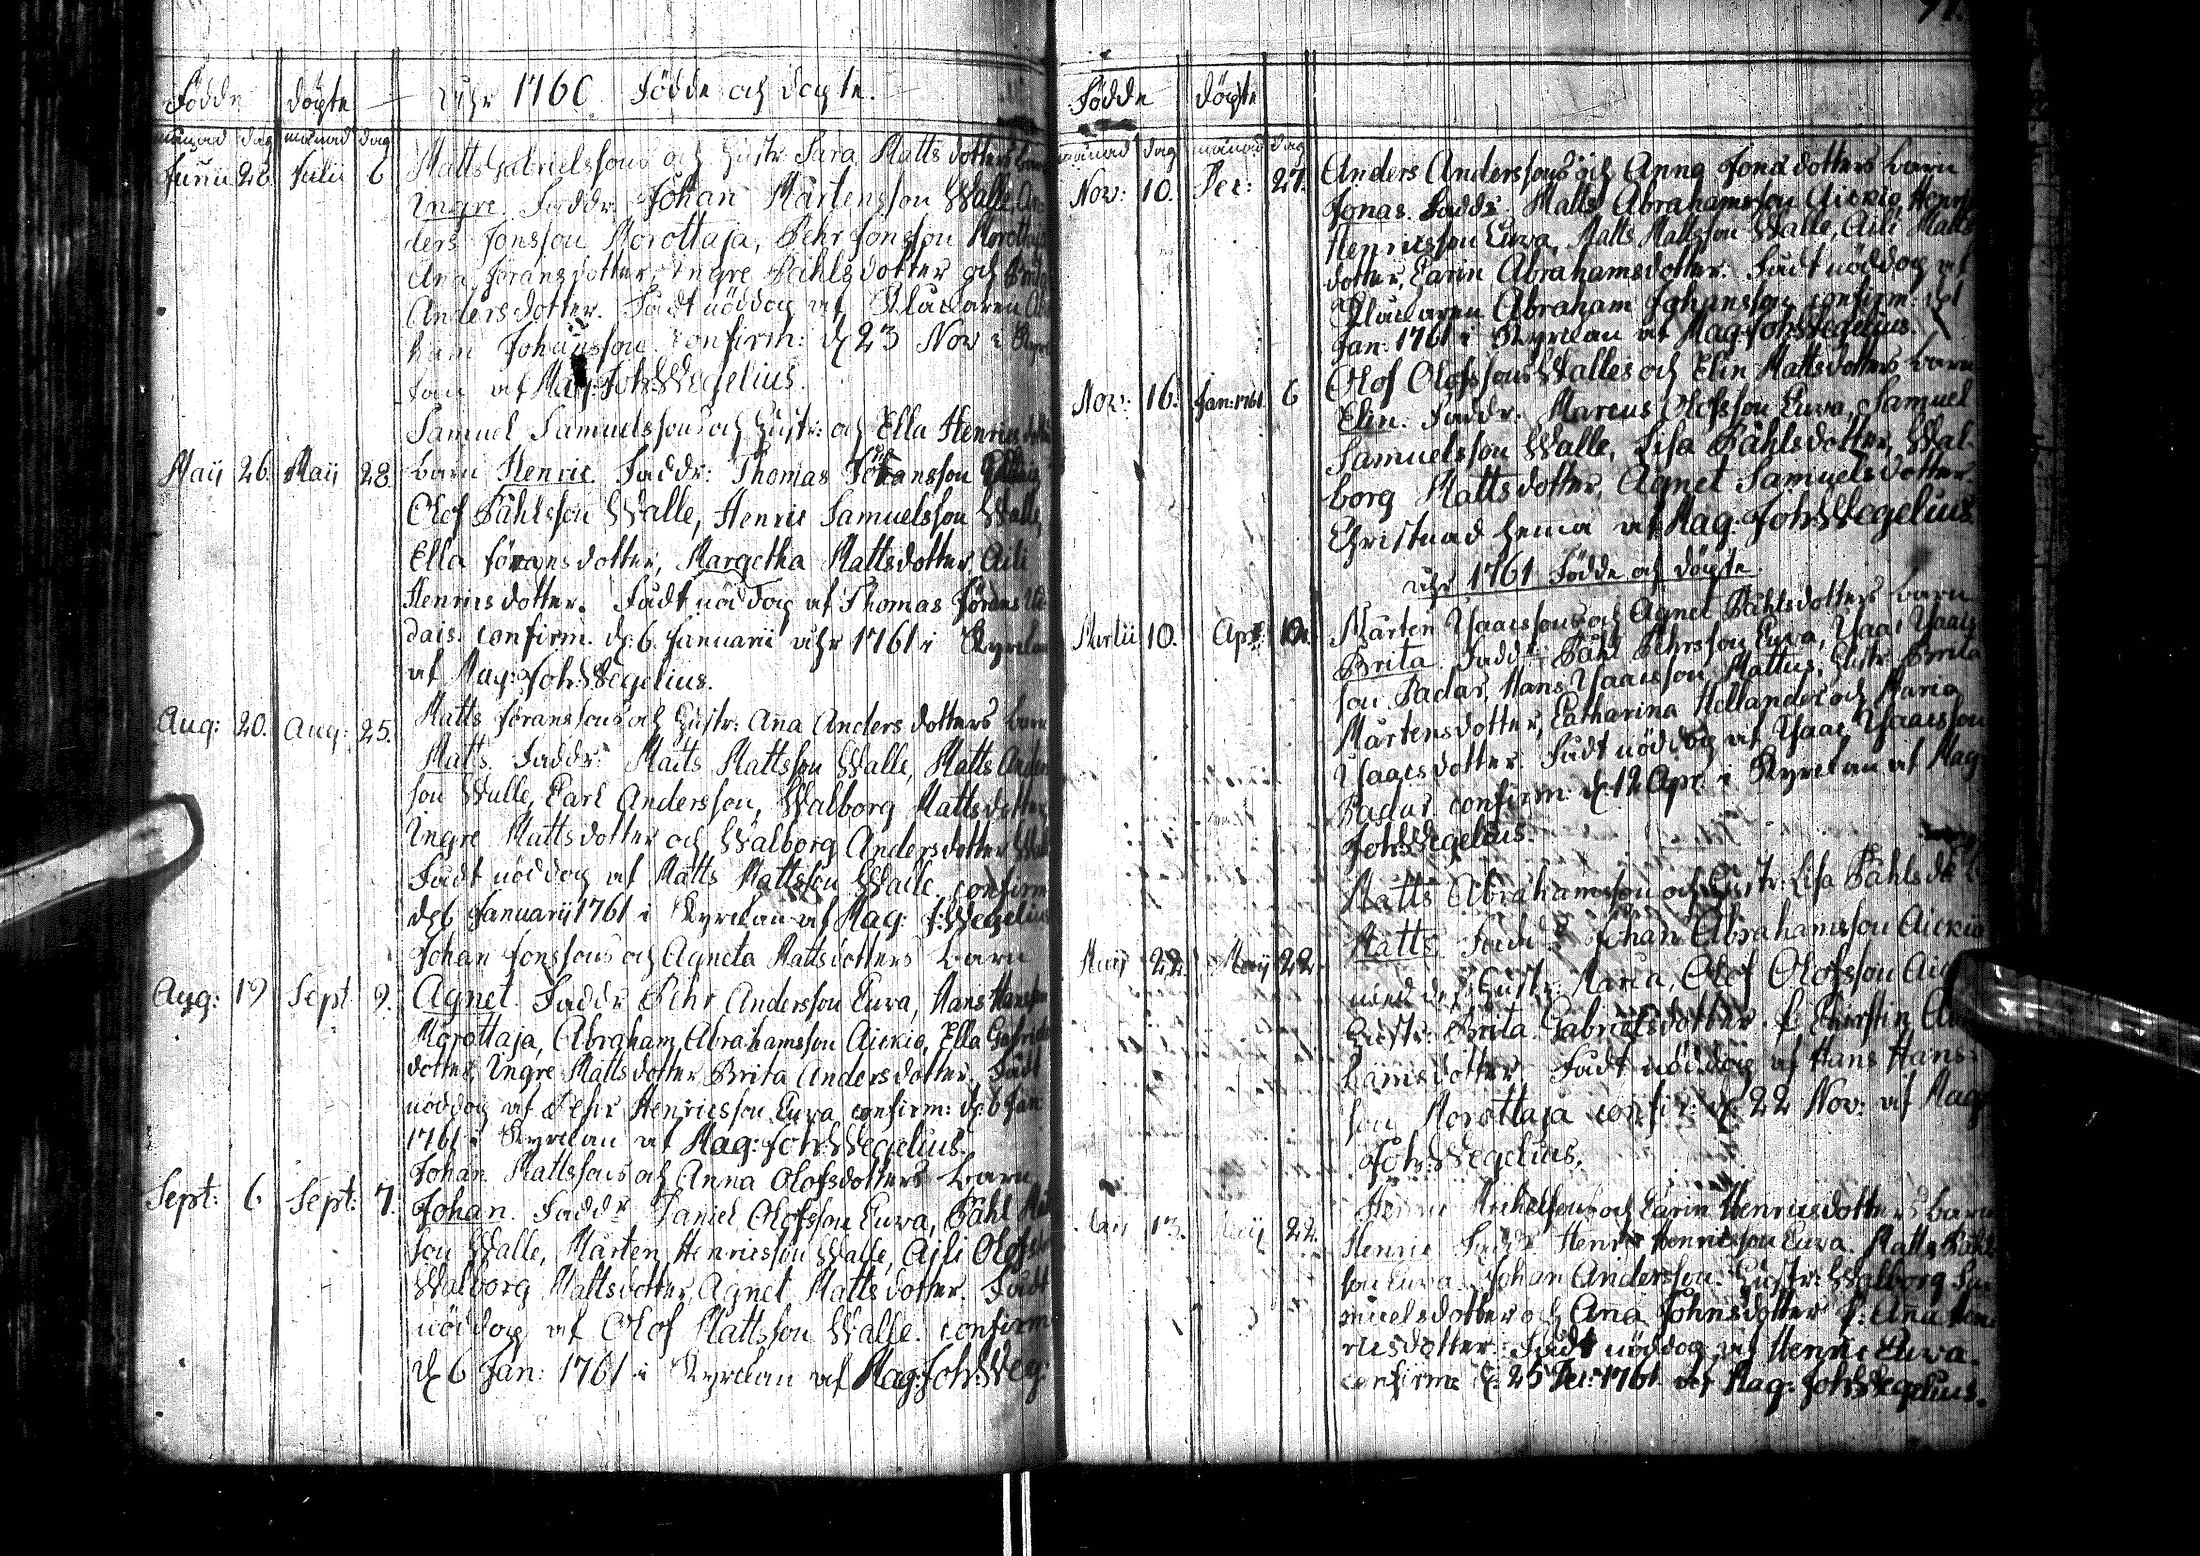 Födde döpte Åhr 1760 Födde och döpte.
månad dag månad dag
Junii 28. Julii 6 Matts Gabrielssons och Hustr. Sara Mattsdotters barn
Ingre. Faddr. Johan Mårtensson Walle, An-
ders Jonsson Morottaja, Pehr Jonsson Morottaja
Ana Joransdotter, Ingre Påhlsdotter och Brita
Andersdotter. Fådt nöddop af Klockaren Abra-
ham Johansson confirm: d. 23 Nov i Kyrc-
kan af Mag: Joh: Wegelius.
Samuel Samuelssons och Hustr: och Ella Henricsdotters
Maij 26. Maij 28. barn Henric. Faddr: Thomas Föransson
Olof Påhlsson Walle, Henric Samuelsson Walle,
Ella Föransdotter, Margetha Mattsdotter, Aili
Henricsdotter. Fådt nöddop af Thomas
confirm. d: 6. Januarii åhr 1761 i Kyrckan
af Mag: Joh: Wegelius.
Aug: 20. Aug: 25. Matts Foranssons och Hustr: Ana Andersdotters barn
Matts. Faddr: Matts Mattsson Walle, Matts Anders
son Walle, Carl Andersson, Walborg Mattsdotter,
Ingre Mattsdotter och Walborg Andersdotter
Fådt nöddop af Matts Mattsson Walle. confirm
d: 6 Januarij 1761 i Kyrckan af Mag: J: Wegelius
Johan Jonssons och Agneta Mattsdotters barn
Aug: 19 Sept 9. Agnet. Faddr Pehr Andersson Eura, Hans Hansson
Morottaja, Abraham Abrahamsson Aickio, Ella Gabriels
dotter, Ingre Mattsdotter, Brita Andersdotter, Fådt
nöddop af Pehr Henricsson Eura confirm: d: 6 Jan
1761 i Kyrckan af Mag: Joh: Wegelius.
Johan Mattssons och Anna Olofsdotters barn
Sept: 6 Sept: 7. Johan. Faddr Daniel Olofsson Eura, Påhl
son Walle, Mårten Henricsson Walle, Aili Olofs
Walborg Mattsdotter, Agnet Mattsdotter. Fådt
nöddop af Olof Mattsson Walle. confirm
d: 6 Jan: 1761 i Kyrckan af Mag: Joh: Weg:
Födde döpte
månad dag månad dag
Nov: 10. Dec: 27. Anders Anderssons och Anna Jonsdotters barn
Jonas. Faddr Matts Abrahamsson Aickio, Henric
Henricsson Eura, Matts Mattsson Walle, Aili Matts
dotter, Carin Abrahamsdotter. Fådt nöddop af
Klockaren Abraham Johansson confirm: d: 1
Jan: 1761 i Kyrckan af Mag: Joh: Wegelius.
Nov: 16. Jan: 1761. 6 Olof Olofssons Walles och Elin Mattsdotters barn
Elin. Faddr. Marcus Olofsson Eura, Samuel
Samuelsson Walle, Lisa Påhlsdotter, Wal-
borg Mattsdotter, Agnet Samuelsdotter.
Christnad hema af Mag: Joh: Wegelius.
Åhr 1761 Födde och döpte.
Martii 10. Apr: Mårten Isaacssons och Agnet Påhlsdotters barn
Brita. Faddr: Påhl Pehrsson Eura, Isaac Isaacs
son Padar, Hans Isaacsson Mattus, Hustr. Brita
Mårtensdotter, Catharina Hollander och Maria
Isaacsdotter. Fådt nöddop af Isaac Isaacsson
Padar confirm d: 12 Apr: i Kyrckan af Mag
Joh: Wegelius.
Matts Abrahamsson och Hustr: Lisa Påhlsd:
Maij 22. Maij 22. Matts. Faddr Johan Abrahamsson Aickio
med des Hustr: Maria, Olof Olofsson
Hustr: Brita Gabrielsdotter. P. Christin
hamsdotter. Fådt nöddop af Hans Hans-
son Morottaja confir: d: 22 Nov: af Mag
Joh: Wegelius.
13. Maij 22. Henric Michelssons och Carin Henricsdotters barn
Henric Faddr Henric Henricsson Eura. Matts Påhls
son Eura. Johan Andersson. Hustr: Walborg Sa-
muelsdotter och Ana Johnsdotter P: Ana Hen
ricsdotter. Fådt nöddop af Henric Eura.
confirm: d: 25 Dec: 1761 af Mag: Joh: Wegelius.